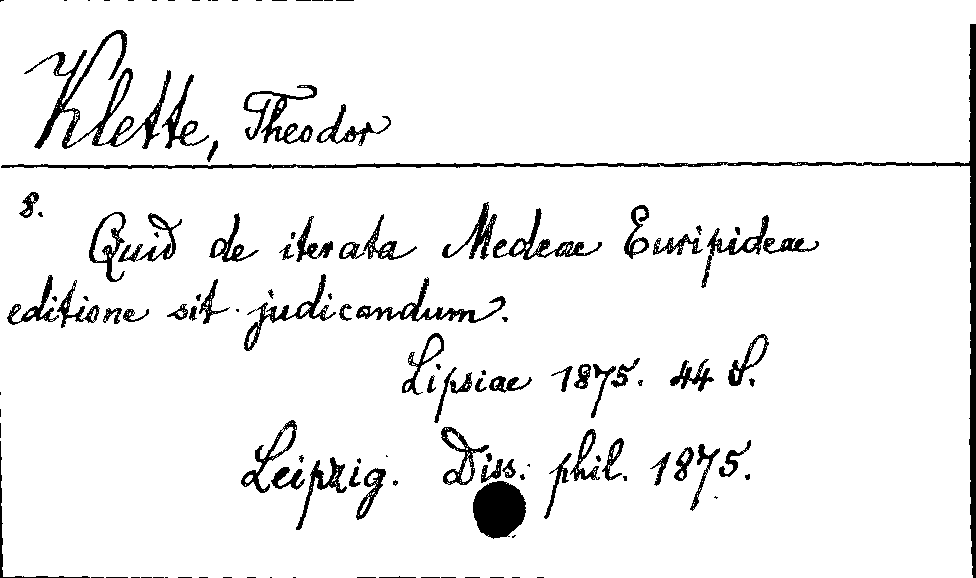 Klette, Theodor
8.
Quid de iterata Medeae Euripideae
editione sit judicandum.
Lipsiae 1875. 44 S.
Leipzig. Diss. phil. 1875.